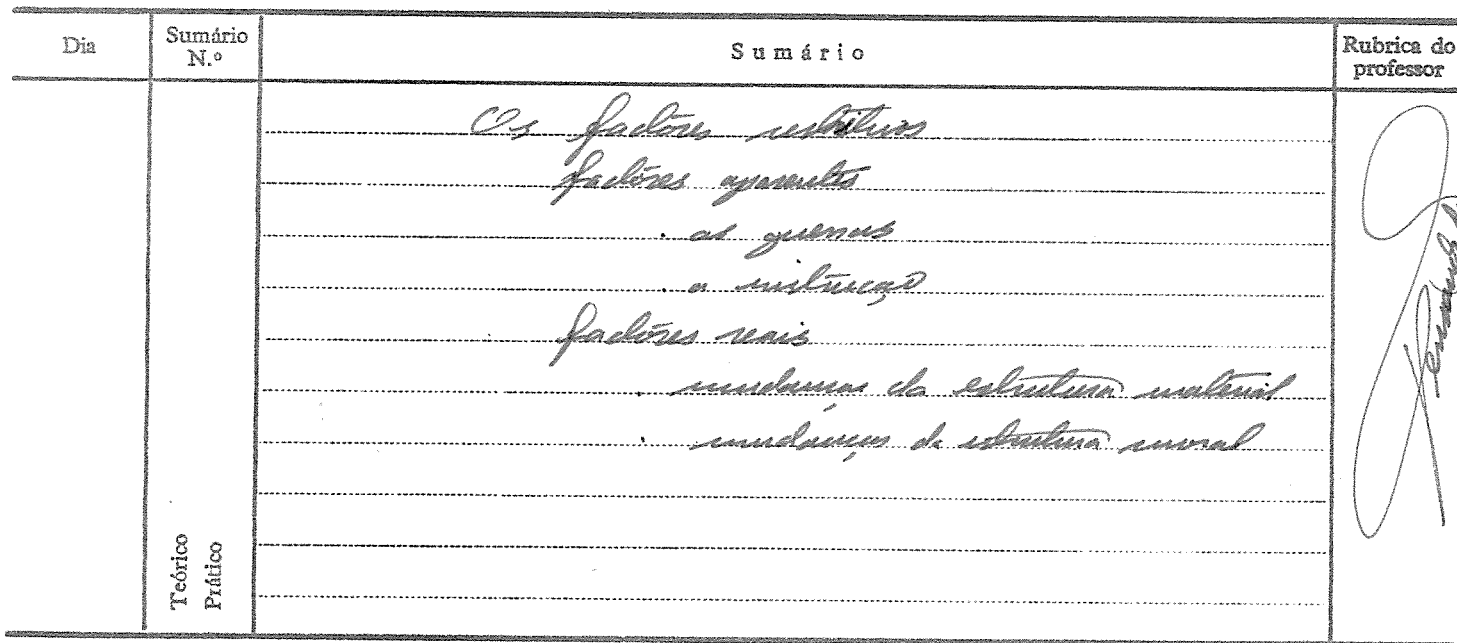 Dia
Sumário N.º
Sumário
Rubrica do professor
Os factôres
factôres aparentes
. as guerras
. a instrução
factôres reais
. mudanças da estrutura material
. mudanças da estrutura moral
Teórico
Prático